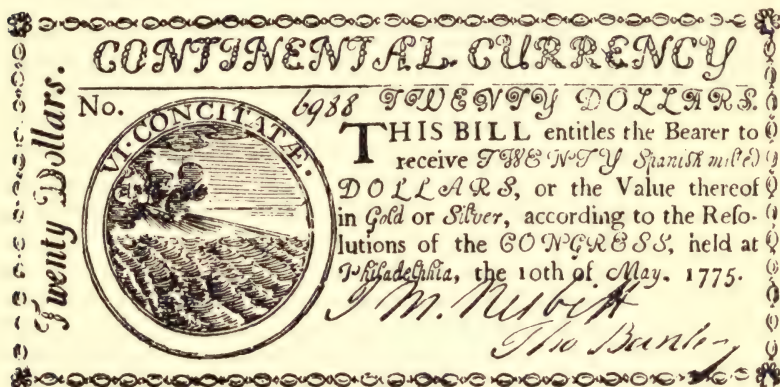 CONTINENTAL CURRENCY
Twenty Dollars.
No. 6988 TWENTY DOLLARS.
VI·CONCITATÆ.
THIS BILL entitles the Bearer to
receive TWENTY Spanish milled
DOLLARS, or the Value thereof
in Gold or Silver, according to the Reſo-
lutions of the CONGRESS, held at
Philadelphia, the 10th of May. 1775.
J M. Nesbitt
Tho